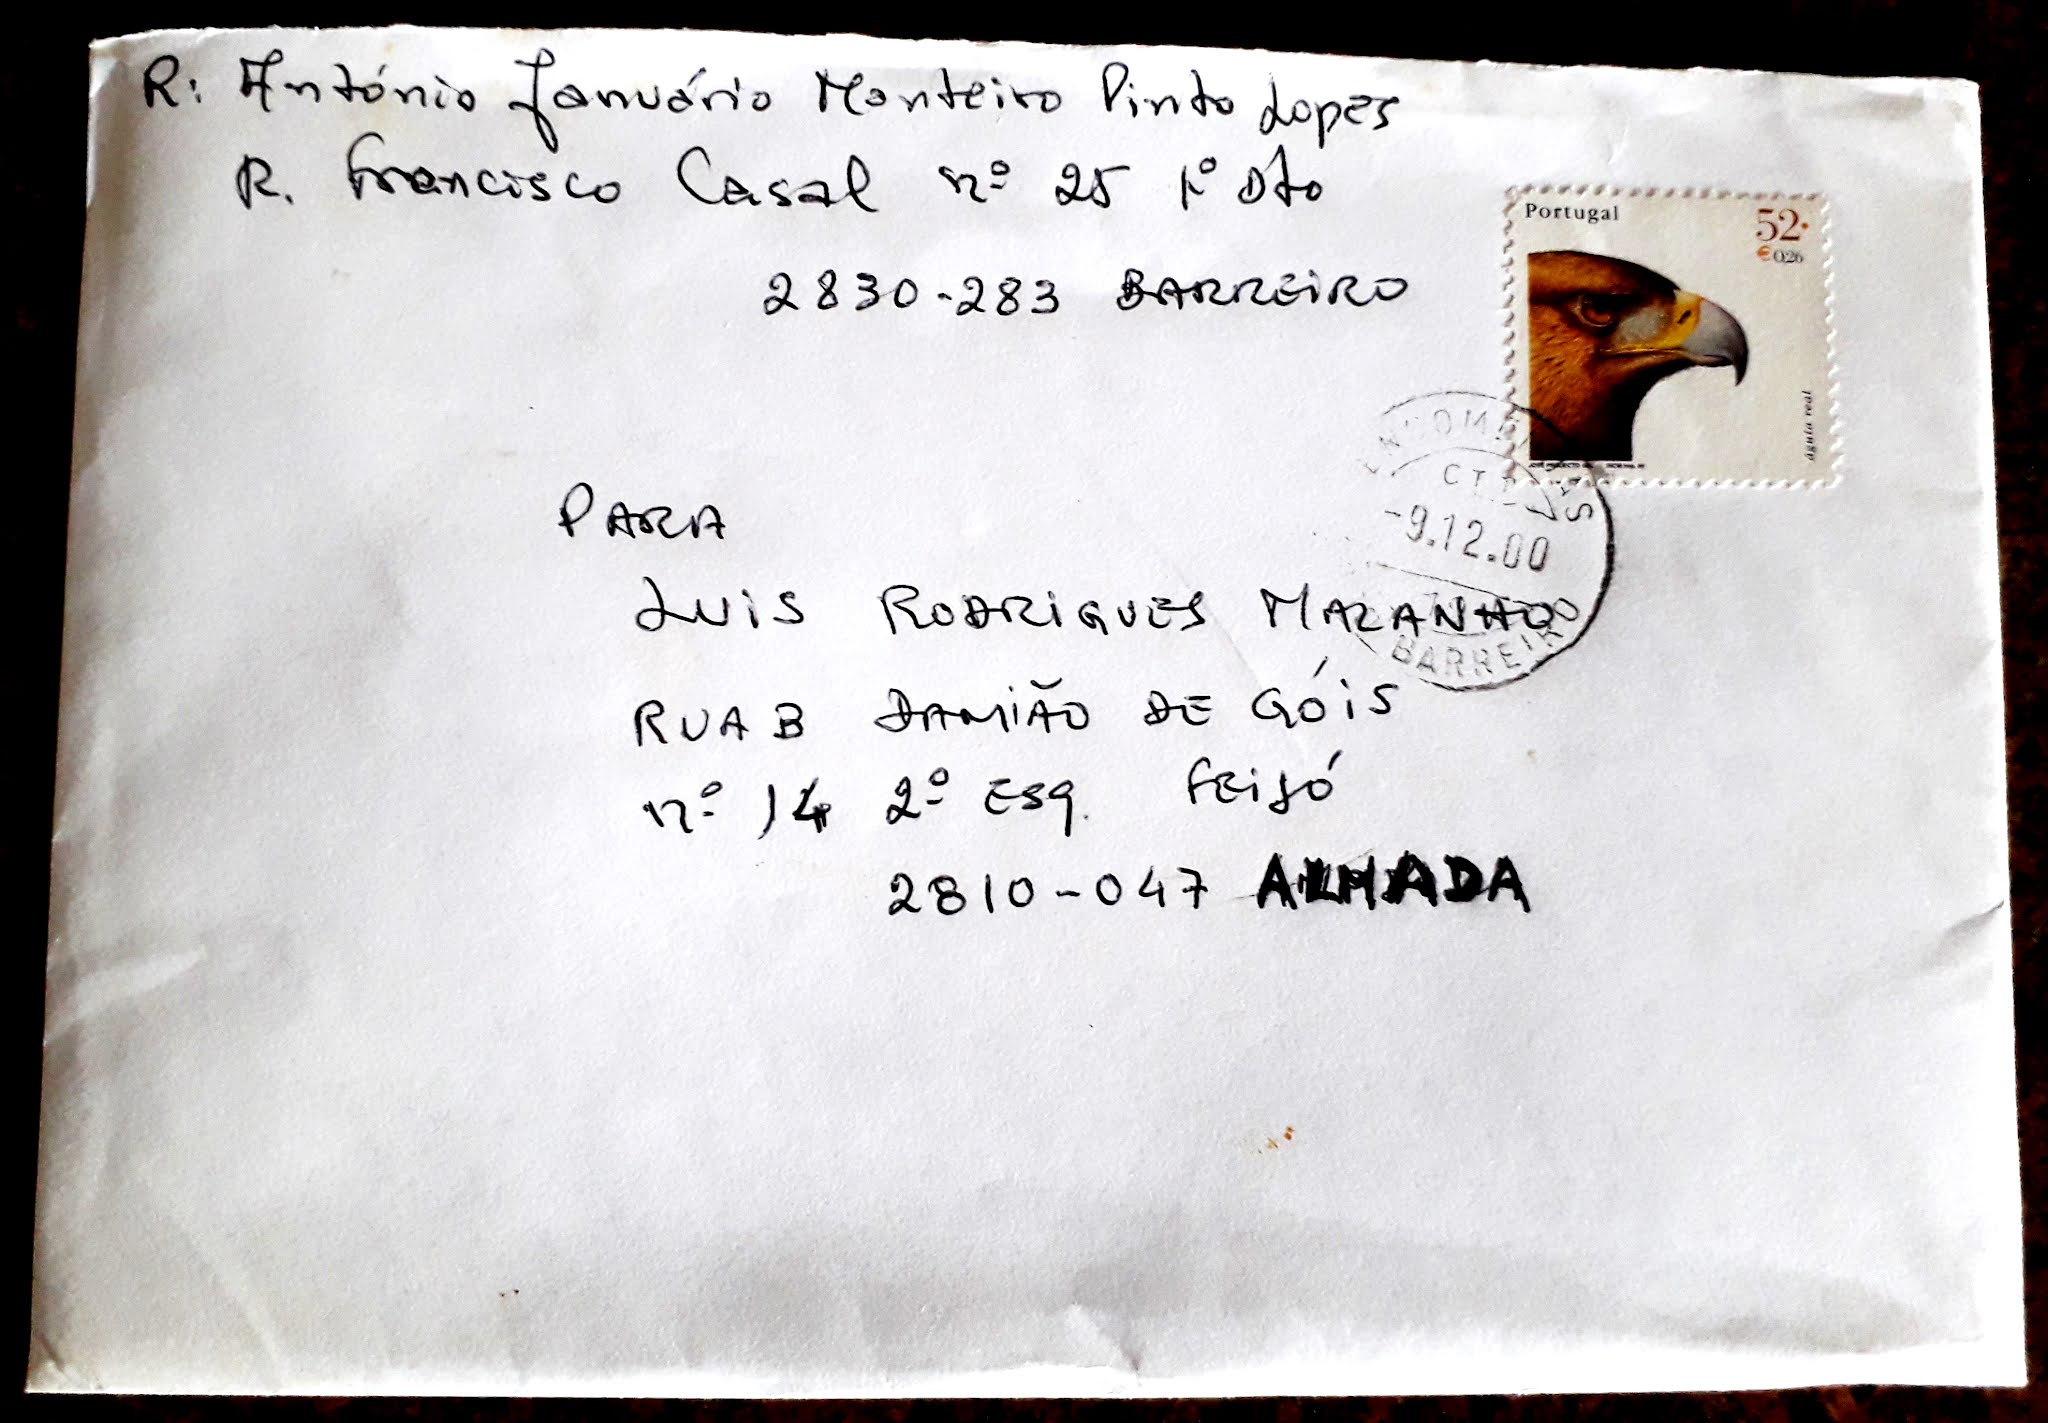 R: António Januário Monteiro Pinto Lopes
R. Francisco Casal nº 25 1º Dto
2830-283 BARREIRO
Portugal
52.
€0,26
águia real
CTT
-9.12.00
BARREIRO
PARA
LUIS RODRIGUES MAZANHO
RUA B DAMIÃO DE GÓIS
nº 14 2º ESQ. FEIJÓ
2810-047 ALMADA